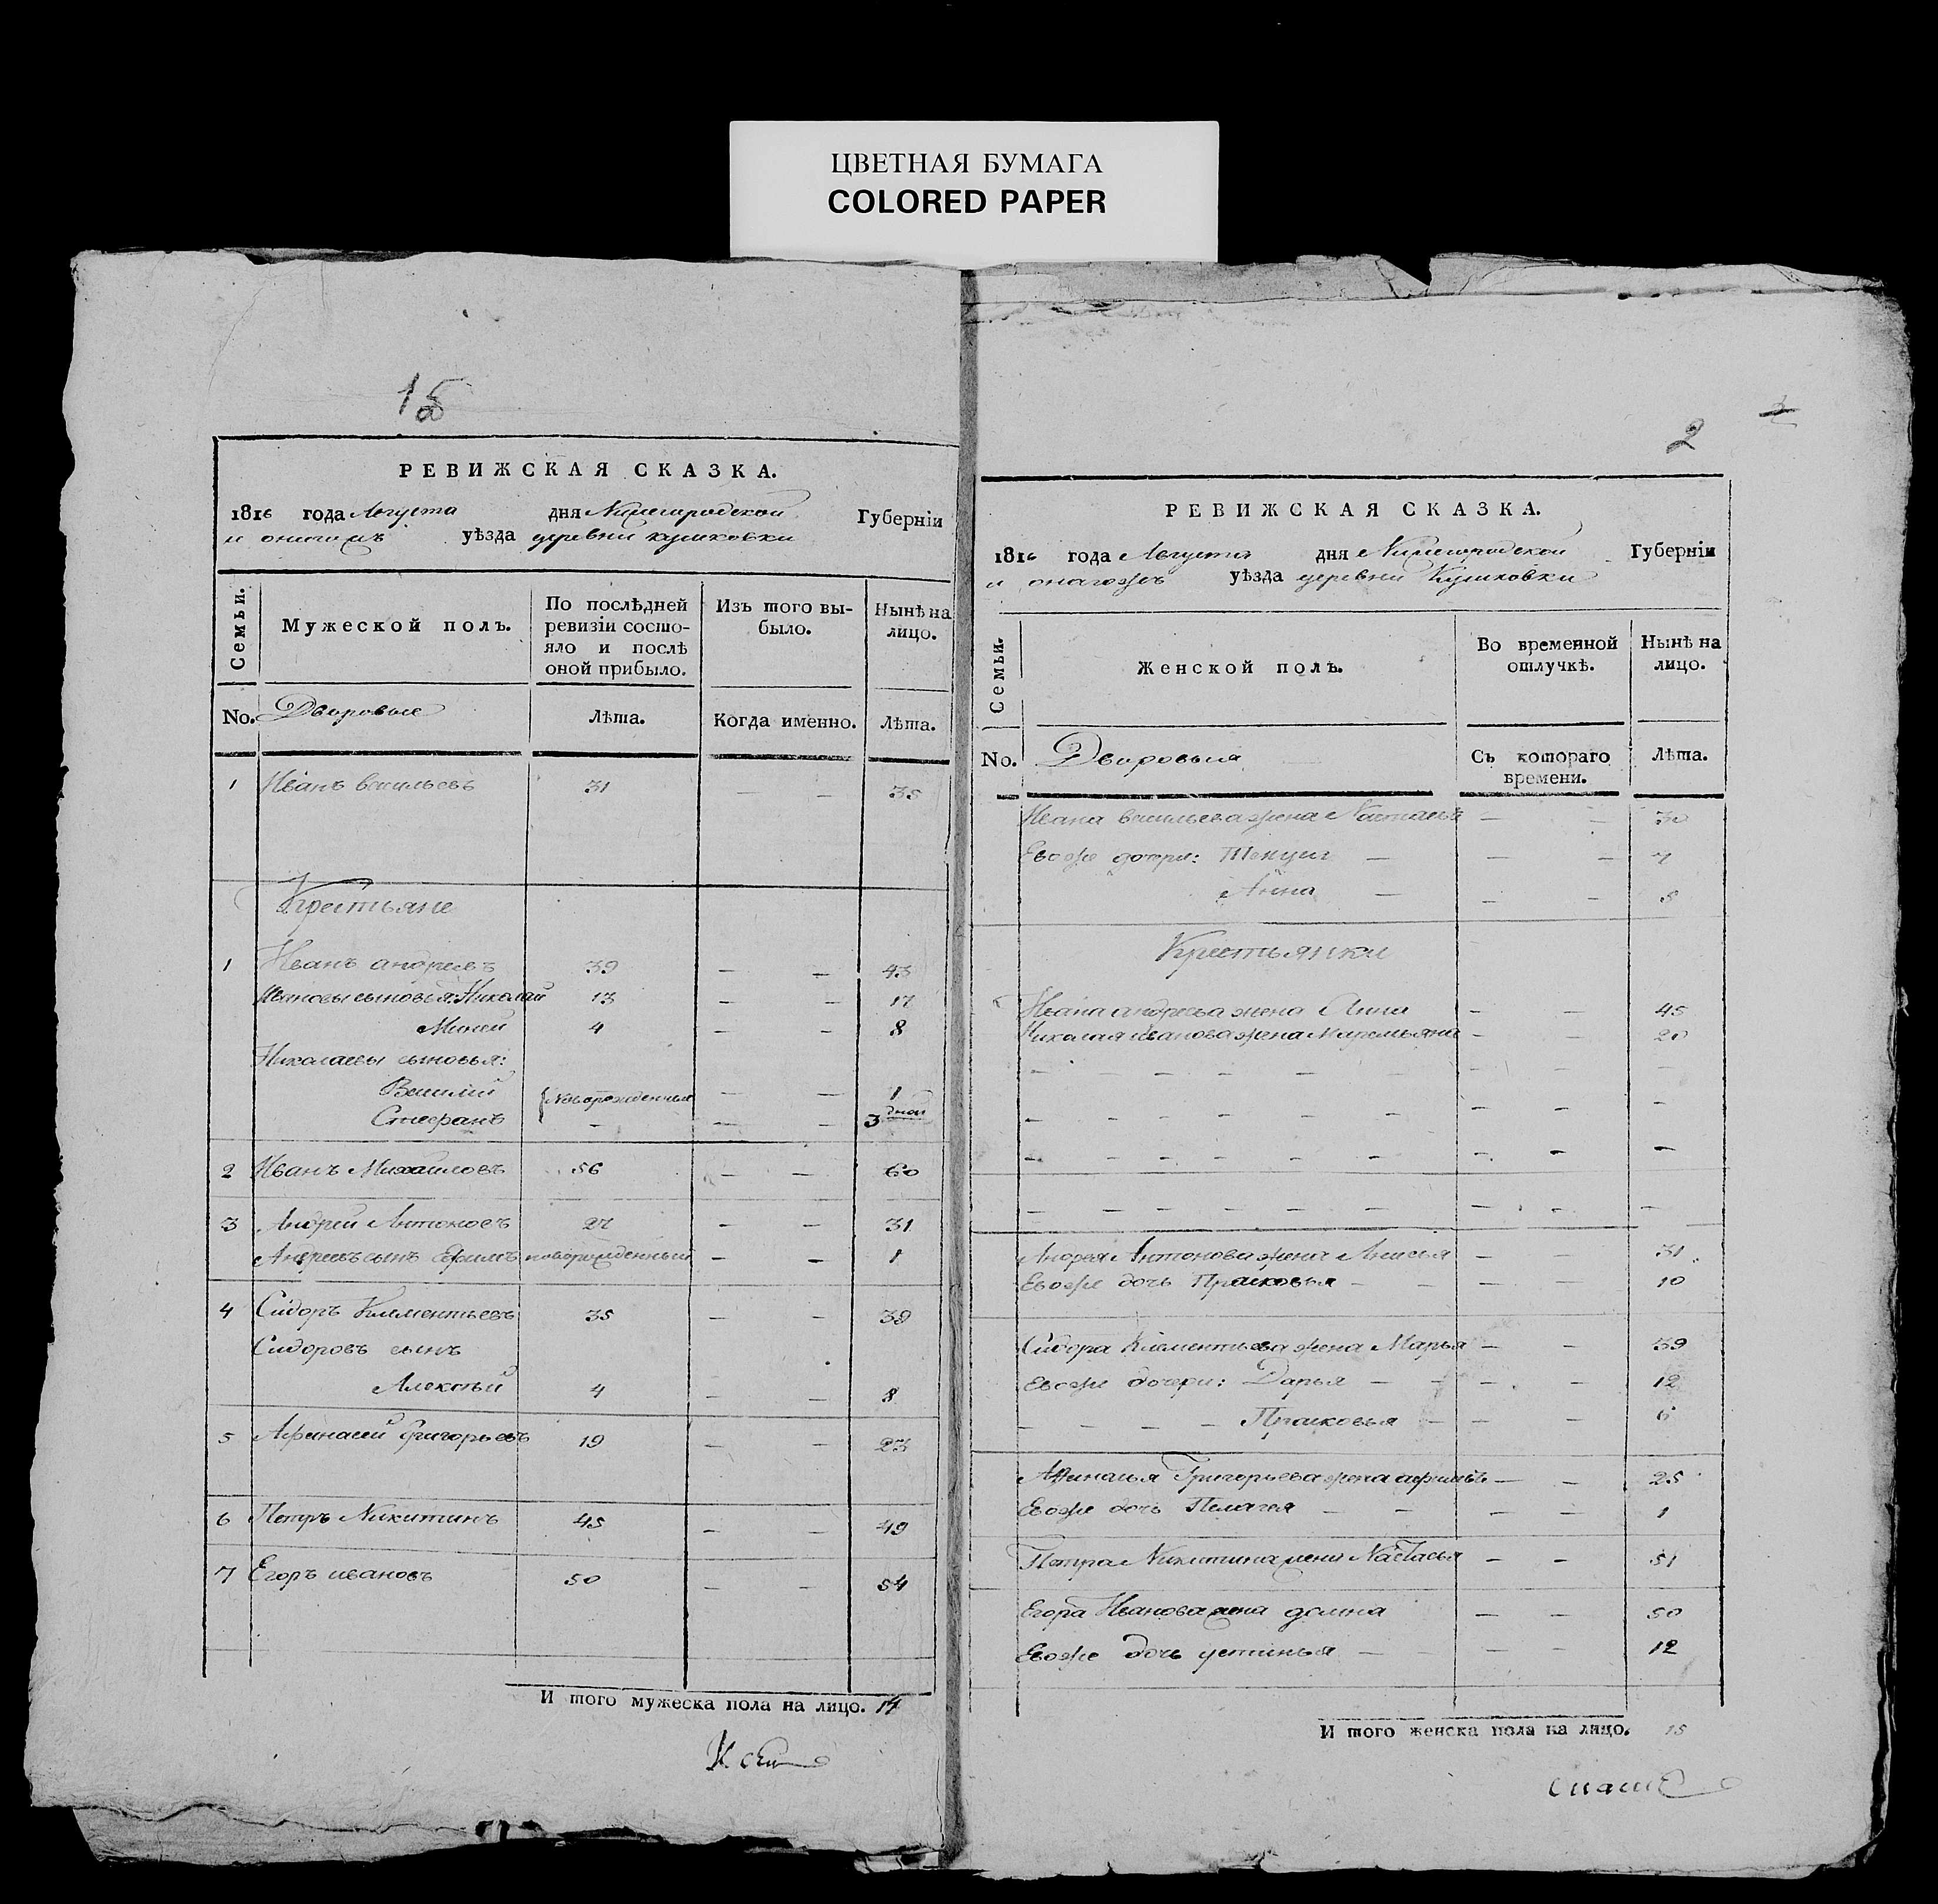 ЦВЕТНАЯ БУМАГА
COLORED PAPER
РЕВИЖСКАЯ СКАЗКА.
1816 года Августа дня Нижегородской Губерніи
и уѣзда деревни куликовки
Семьи.
Мужеской полъ.
По послѣдней ревизіи состояло и послѣ оной прибыло.
Изъ того выбыло.
Нынѣ на лицо.
No. Дворовые Лѣта. Когда именно. Лѣта.
1 Иванъ васильевъ 31 — — 35
Крестьяне
1 Иванъ андреевъ 39 — — 43
Ивановы сыновья: Николай 13 — — 17
Миней 4 — — 8
Николаевы сыновья:
Василий новорожденныя — — 1
Стефанъ — — — 3 дней
2 Иванъ Михаиловъ 56 — — 60
3 Андрей Антоновъ 27 — — 31
Андреевъ сынъ Ефимъ новорожденный — — 1
4 Сидоръ Климентьевъ 35 — — 39
Сидоровъ сынъ
Алексѣй 4 — — 8
5 Афанасей Григорьевъ 19 — — 23
6 Петръ Никитинъ 45 — — 49
7 Егоръ ивановъ 50 — — 54
И того мужеска пола на лицо. 14
2
РЕВИЖСКАЯ СКАЗКА.
1816 года Августа дня Нижегородской Губерніи
и онагожъ уѣзда деревни Куликовки
Семьи.
Женской полъ.
Во временной отлучкѣ.
Нынѣ на лицо.
No. Дворовыя Съ котораго времени. Лѣта.
Ивана васильева жена Настасья — — 30
Евоже дочери: — — — 7
Анна — — — 5
Крестьянки
Ивана андреева жена Анна — — 45
Николая иванова жена Маремьяна — — 20
Андрея Антонова жена Анисья — — 31
Евоже дочь Прасковья — — — — 10
Сидора Климентьева жена Марья — — 39
Евоже дочери: Дарья — — — — 12
— — — — Прасковья — — — 6
Афанасья Григорьева жена — — 25
Евоже дочь Пелагея — — — — 1
Петра Никитина жена Настасья — — 51
Егора Иванова жена домна — — 50
Евоже дочь устинья — — — — 12
И того женска пола на лицо. 15